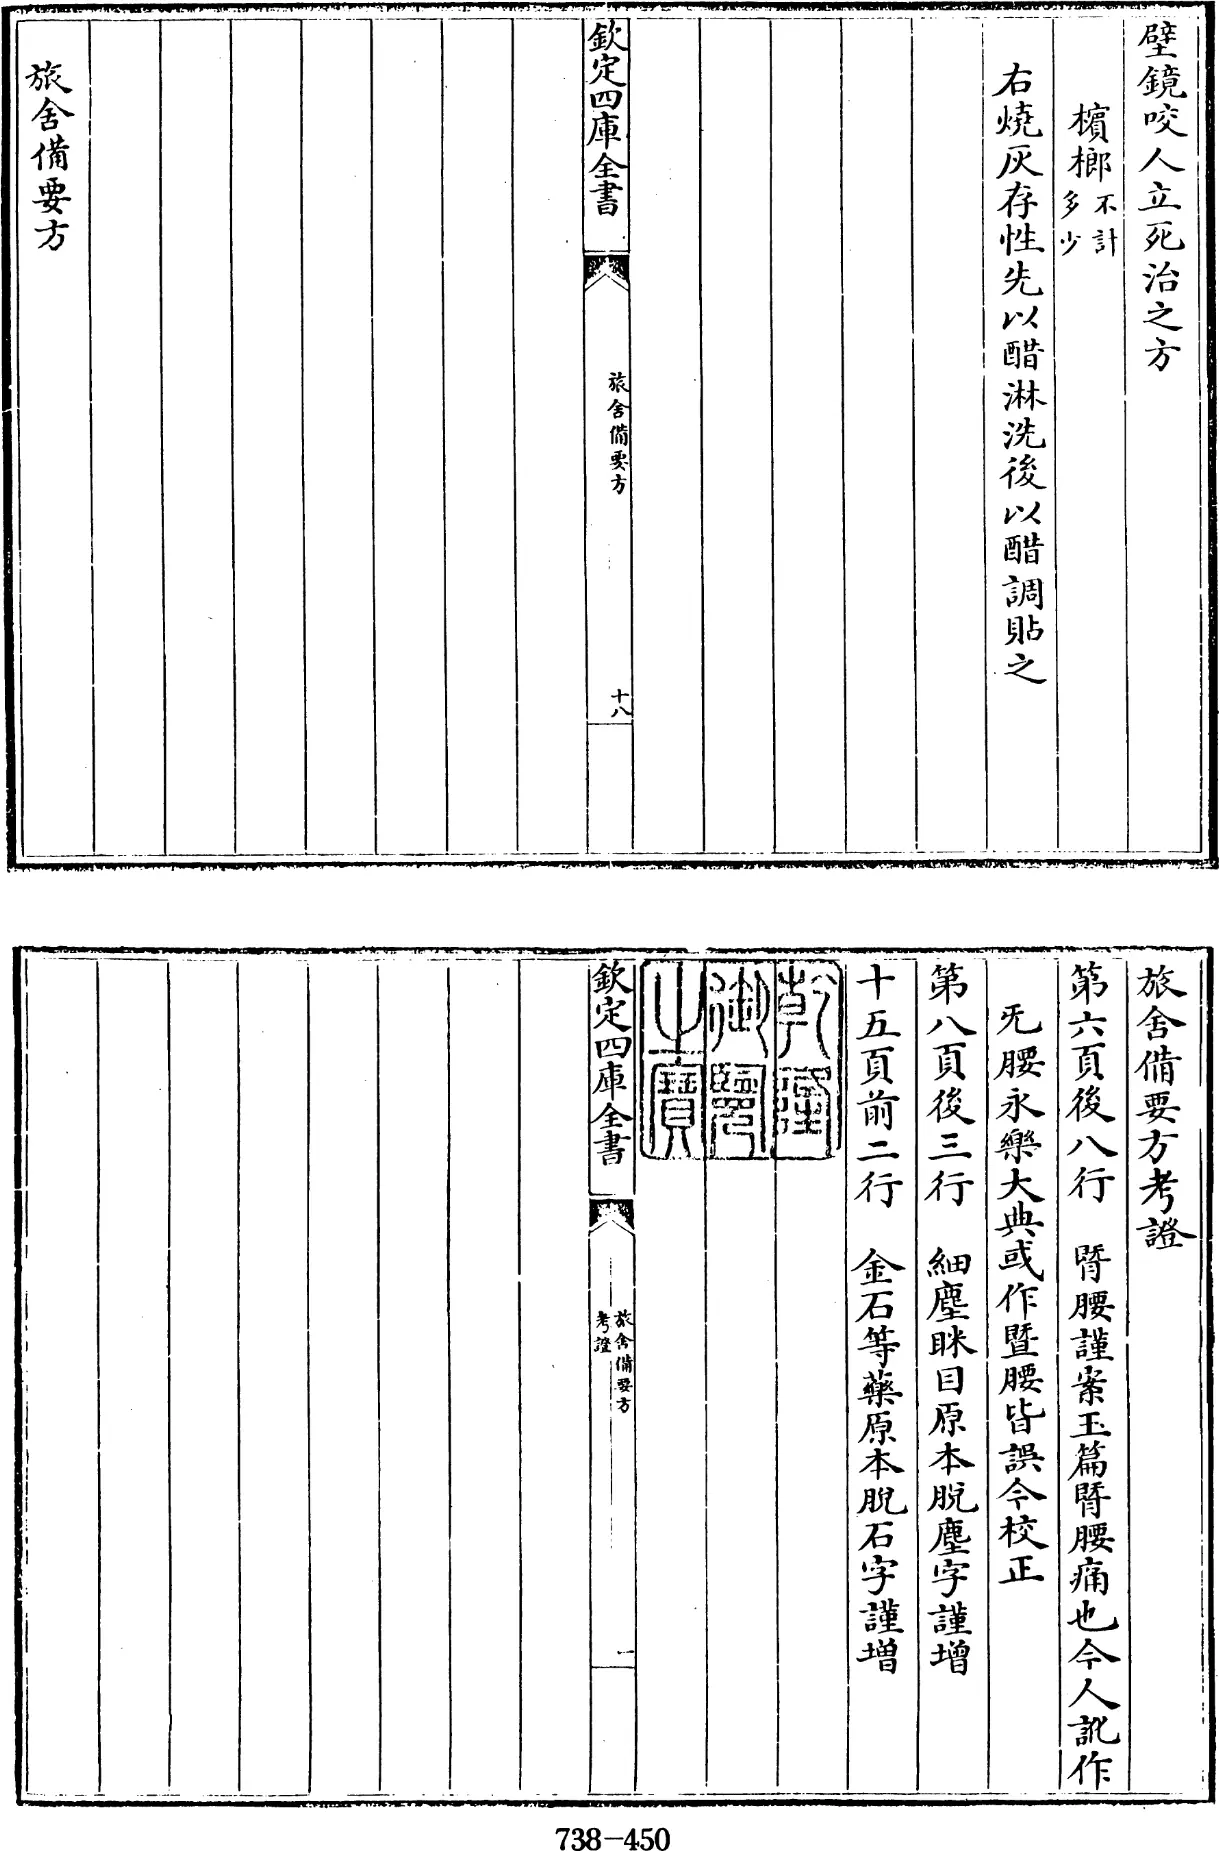 壁鏡咬人立死治之方
檳榔不計多少
右燒灰存性先以醋淋洗後以醋調貼之
欽定四庫全書
旅舍備要方
十八
旅舍備要方
旅舍備要方考證
第六頁後八行　臀腰謹案玉篇臀腰痛也今人訛作
旡腰永樂大典或作暨腰皆誤今校正
第八頁後三行　細塵眯目原本脫塵字謹增
十五頁前二行　金石等藥原本脫石字謹增
乾隆御覽之寶
欽定四庫全書
旅舍備要方
考證
一
738-450